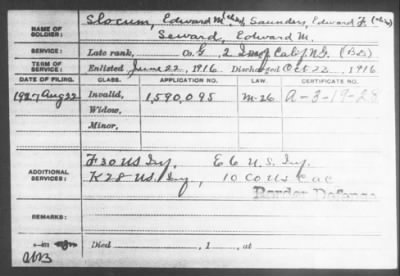 NAME OF SOLDIER: Slocum, Edward M (alias) Saunders, Edward F. (alias)
Seward, Edward M.
SERVICE: Late rank, Co. G, 2 Inf Calif N.G.
TERM OF SERVICE: Enlisted June 22, 1916 Discharged Oct 23, 1916
DATE OF FILING. CLASS. APPLICATION NO. LAW. CERTIFICATE NO.
1927 Aug 22 Invalid, 1,590,095 M-26 A-3-19-28
Widow,
Minor,
ADDITIONAL SERVICES: F 30 US Inf. E 6 U.S. Inf.
K 28 US. Inf, 10 Co US CAC
Border Defense
REMARKS:
Died , 1 , at